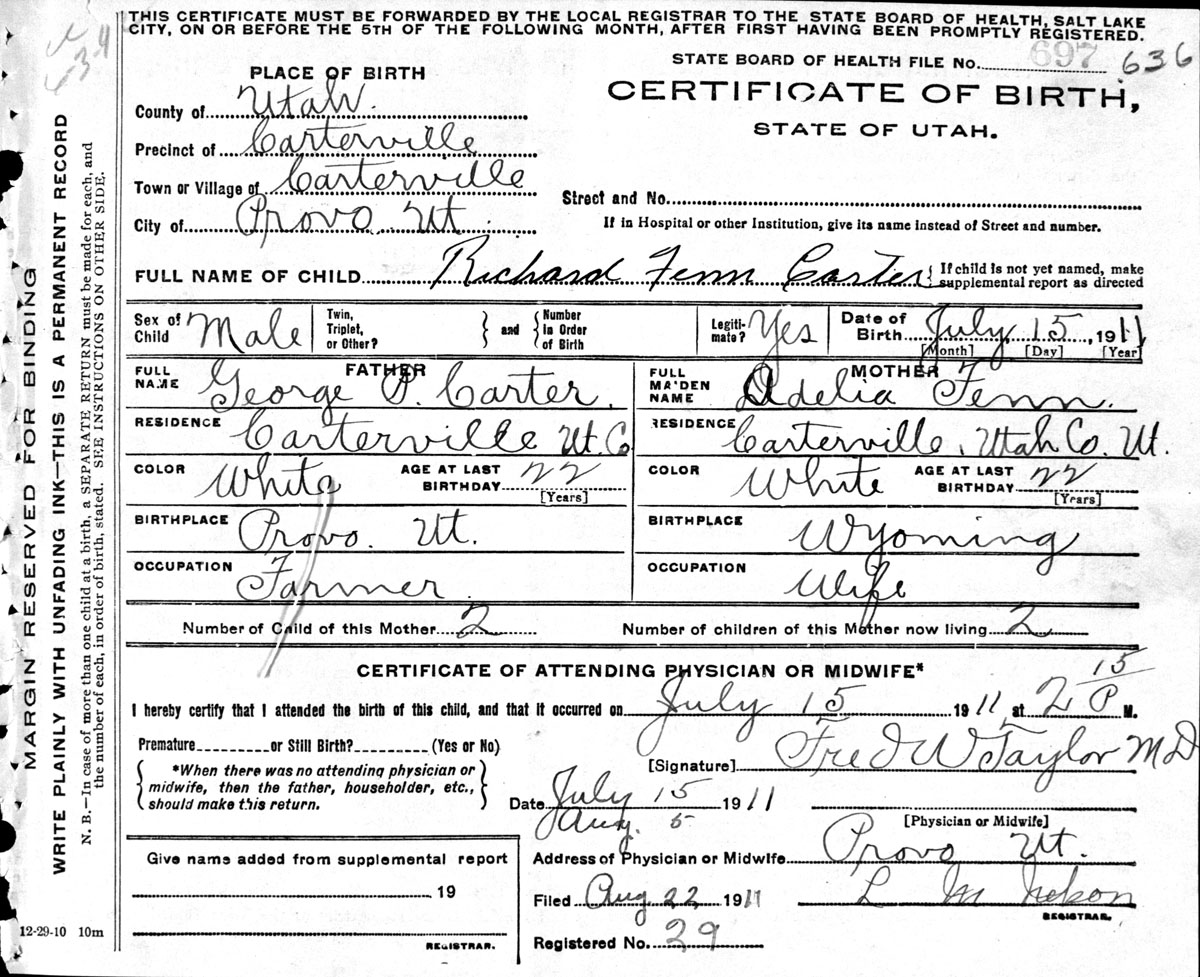 THIS CERTIFICATE MUST BE FORWARDED BY THE LOCAL REGISTRAR TO THE STATE BOARD OF HEALTH, SALT LAKE
CITY, ON OR BEFORE THE 5TH OF THE FOLLOWING MONTH, AFTER FIRST HAVING BEEN PROMPTLY REGISTERED.
STATE BOARD OF HEALTH FILE No. 697 636
PLACE OF BIRTH
CERTIFICATE OF BIRTH,
STATE OF UTAH.
County of Utah.
Precinct of Carterville
Town or Village of Carterville
Street and No.
City of Provo Ut.
If in Hospital or other Institution, give its name instead of Street and number.
FULL NAME OF CHILD Richard Fenn Carter { If child is not yet named, make
supplemental report as directed
Sex of Child Male
Twin, Triplet, or Other? } and { Number in Order of Birth
Legiti-mate? Yes
Date of Birth July 15, 1911
[Month] [Day] [Year]
FATHER
FULL NAME George P. Carter.
MOTHER
FULL MAIDEN NAME Adelia Fenn.
RESIDENCE Carterville Ut. Co.
RESIDENCE Carterville, Utah Co. Ut.
COLOR White AGE AT LAST BIRTHDAY 22 [Years]
COLOR White AGE AT LAST BIRTHDAY 22 [Years]
BIRTHPLACE Provo. Ut.
BIRTHPLACE Wyoming
OCCUPATION Farmer.
OCCUPATION Wife
Number of Child of this Mother 2 Number of children of this Mother now living 2
CERTIFICATE OF ATTENDING PHYSICIAN OR MIDWIFE*
I hereby certify that I attended the birth of this child, and that it occurred on July 15 1911, at 2 15 P M.
Premature or Still Birth? (Yes or No)
[Signature] Fred W Taylor M D
{ *When there was no attending physician or
midwife, then the father, householder, etc.,
should make this return. }
Date July 15 1911
Aug. 5
[Physician or Midwife]
Give name added from supplemental report
Address of Physician or Midwife Provo Ut.
19
Filed Aug 22 1911 L M Nelson
REGISTRAR.
REGISTRAR.
Registered No. 29
12-29-10 10m
MARGIN RESERVED FOR BINDING
WRITE PLAINLY WITH UNFADING INK—THIS IS A PERMANENT RECORD
N. B.—In case of more than one child at a birth, a SEPARATE RETURN must be made for each, and
the number of each, in order of birth, stated. SEE INSTRUCTIONS ON OTHER SIDE.